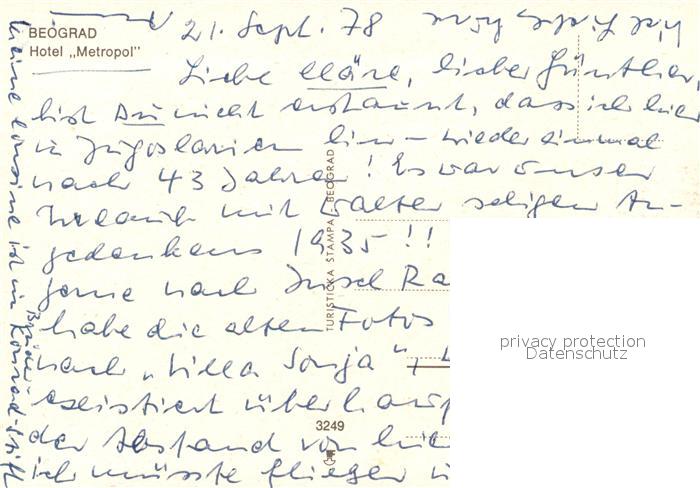 BEOGRAD
Hotel „Metropol"
21. Sept. 78
Liebe Cläre, lieber Günther,
bist Du nicht erstaunt, dass ich hier
in Jugoslavien bin – wieder einmal
nach 43 Jahren! Es war unser
Urlaub mit Walter seligen An-
gedenkens 1935!!
gerne nach Insel Ra
habe die alten Fotos
nach „Villa Sonja",
existiert überhaup
der Abstand von hie
ich müsste fliegen
meine Cousine ist in Konrad-Stift
TURISTIČKA ŠTAMPA, BEOGRAD
3249
privacy protection
Datenschutz